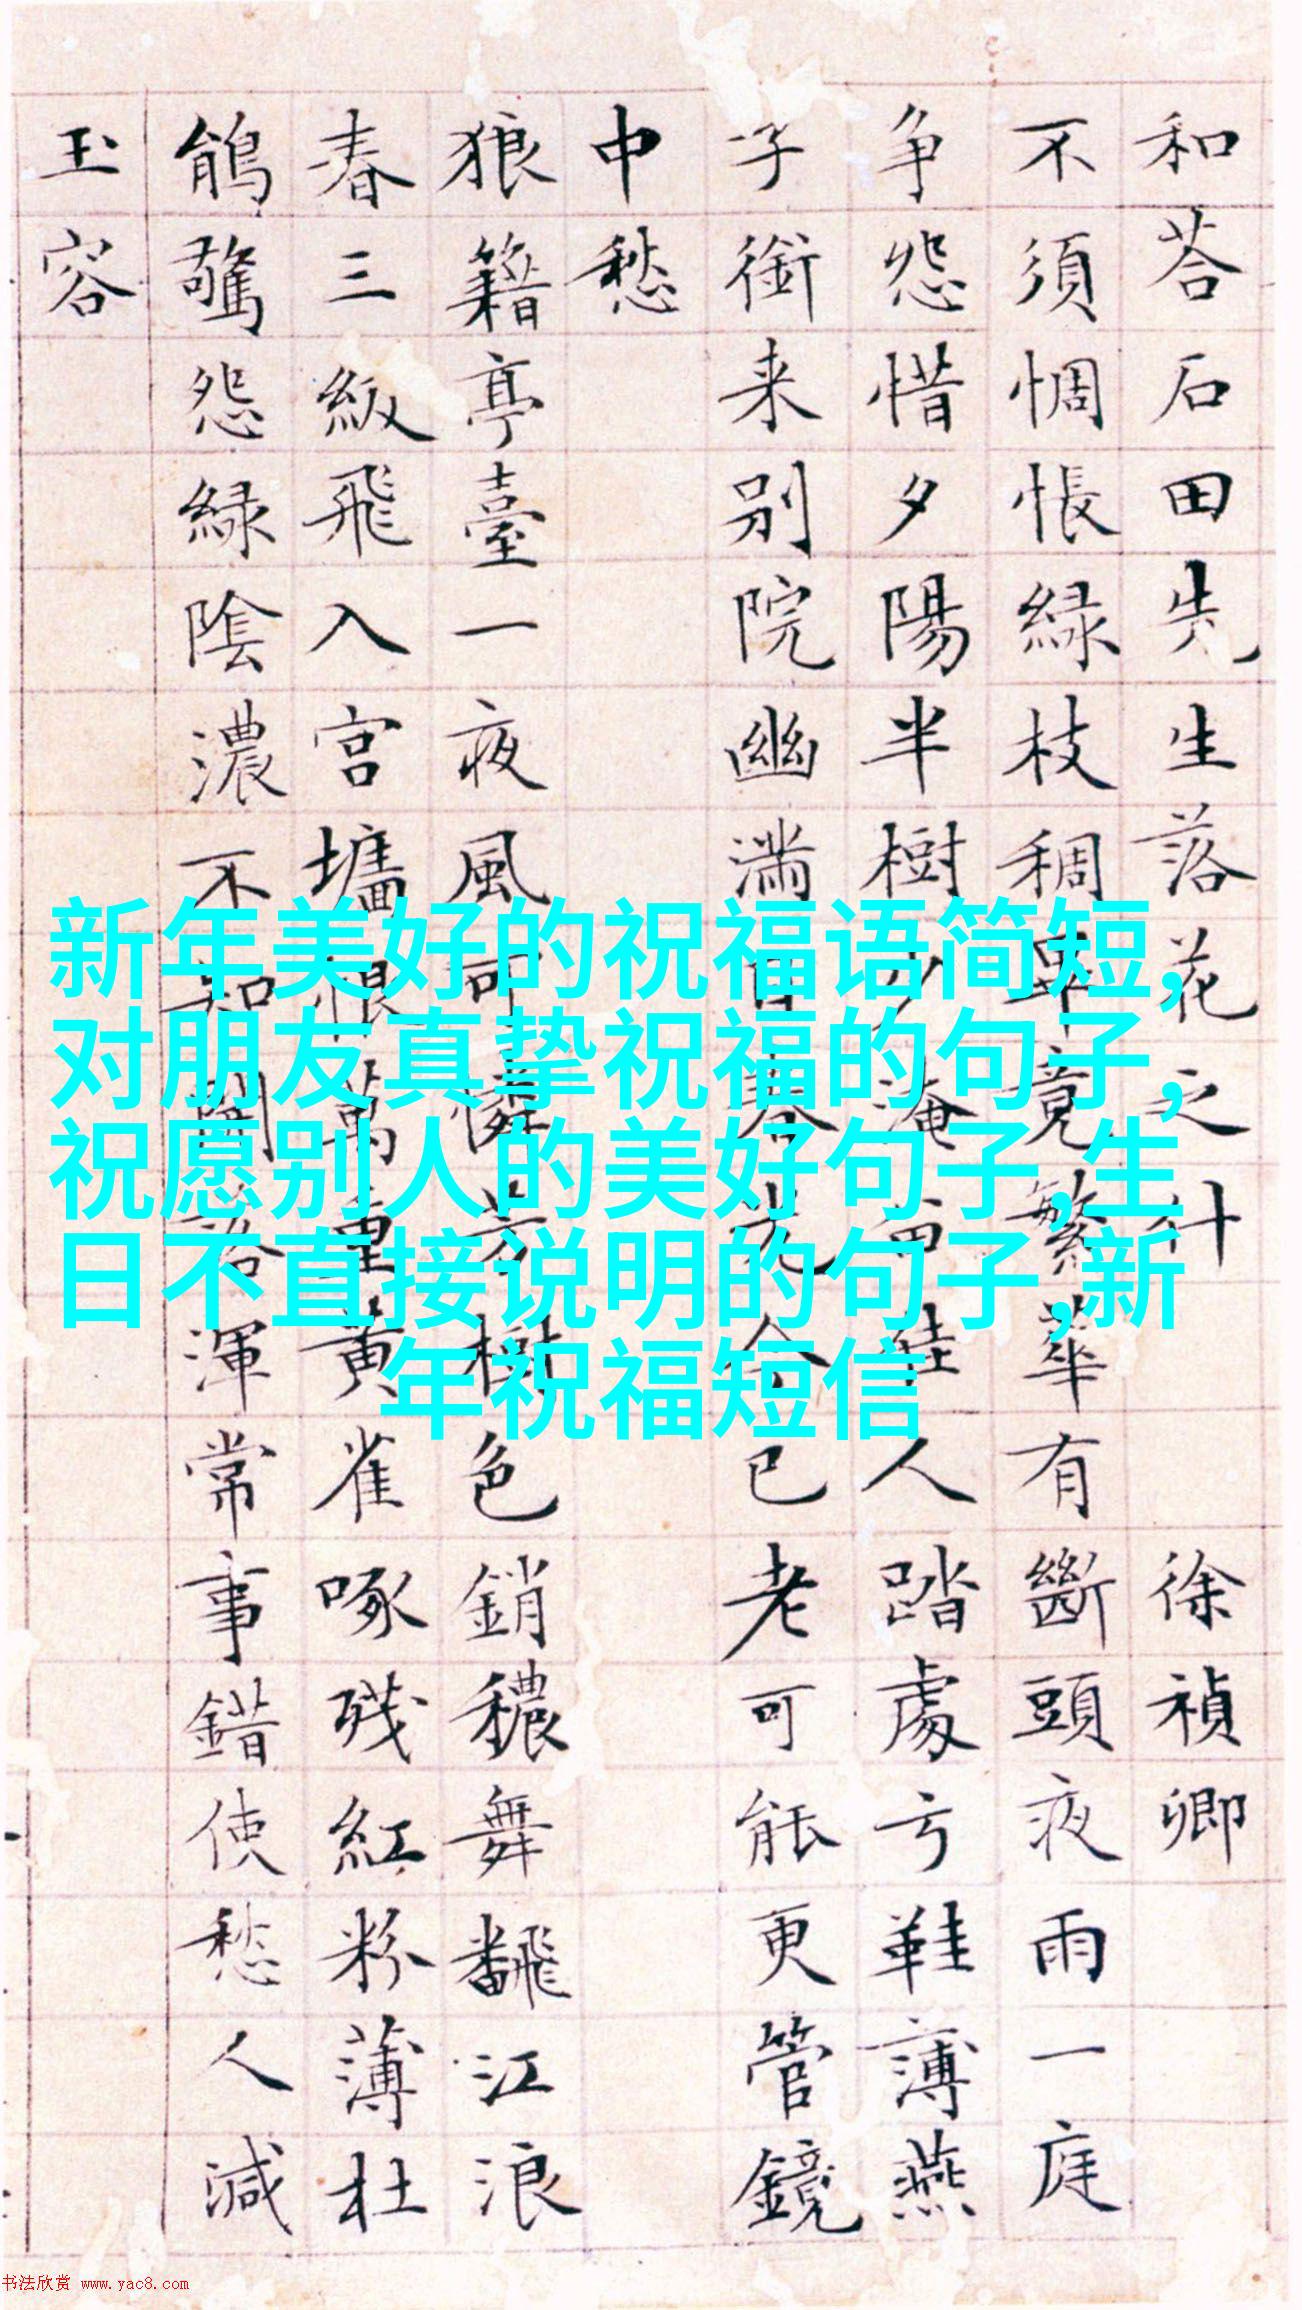 和荅石田先生落花之什 徐禎卿
不須惆悵綠枝稠畢竟繁華有斷頭夜雨一庭
争怨惜夕陽半樹少淹留佳人踏處弓鞋薄燕
子銜来别院幽滿目春光今已老可能更管鏡
中愁
狼籍亭臺一夜風可憐芳樹色銷穠舞飜江浪
春三級飛入宮墻恨萬重黄雀啄殘紅粉薄杜
鵑驚怨綠陰濃不知開落渾常事錯使愁人減
玉容
新年美好的祝福语简短,
对朋友真挚祝福的句子,
祝愿别人的美好句子,生
日不直接说明的句子,新
年祝福短信
书法欣赏 www.yac8.com